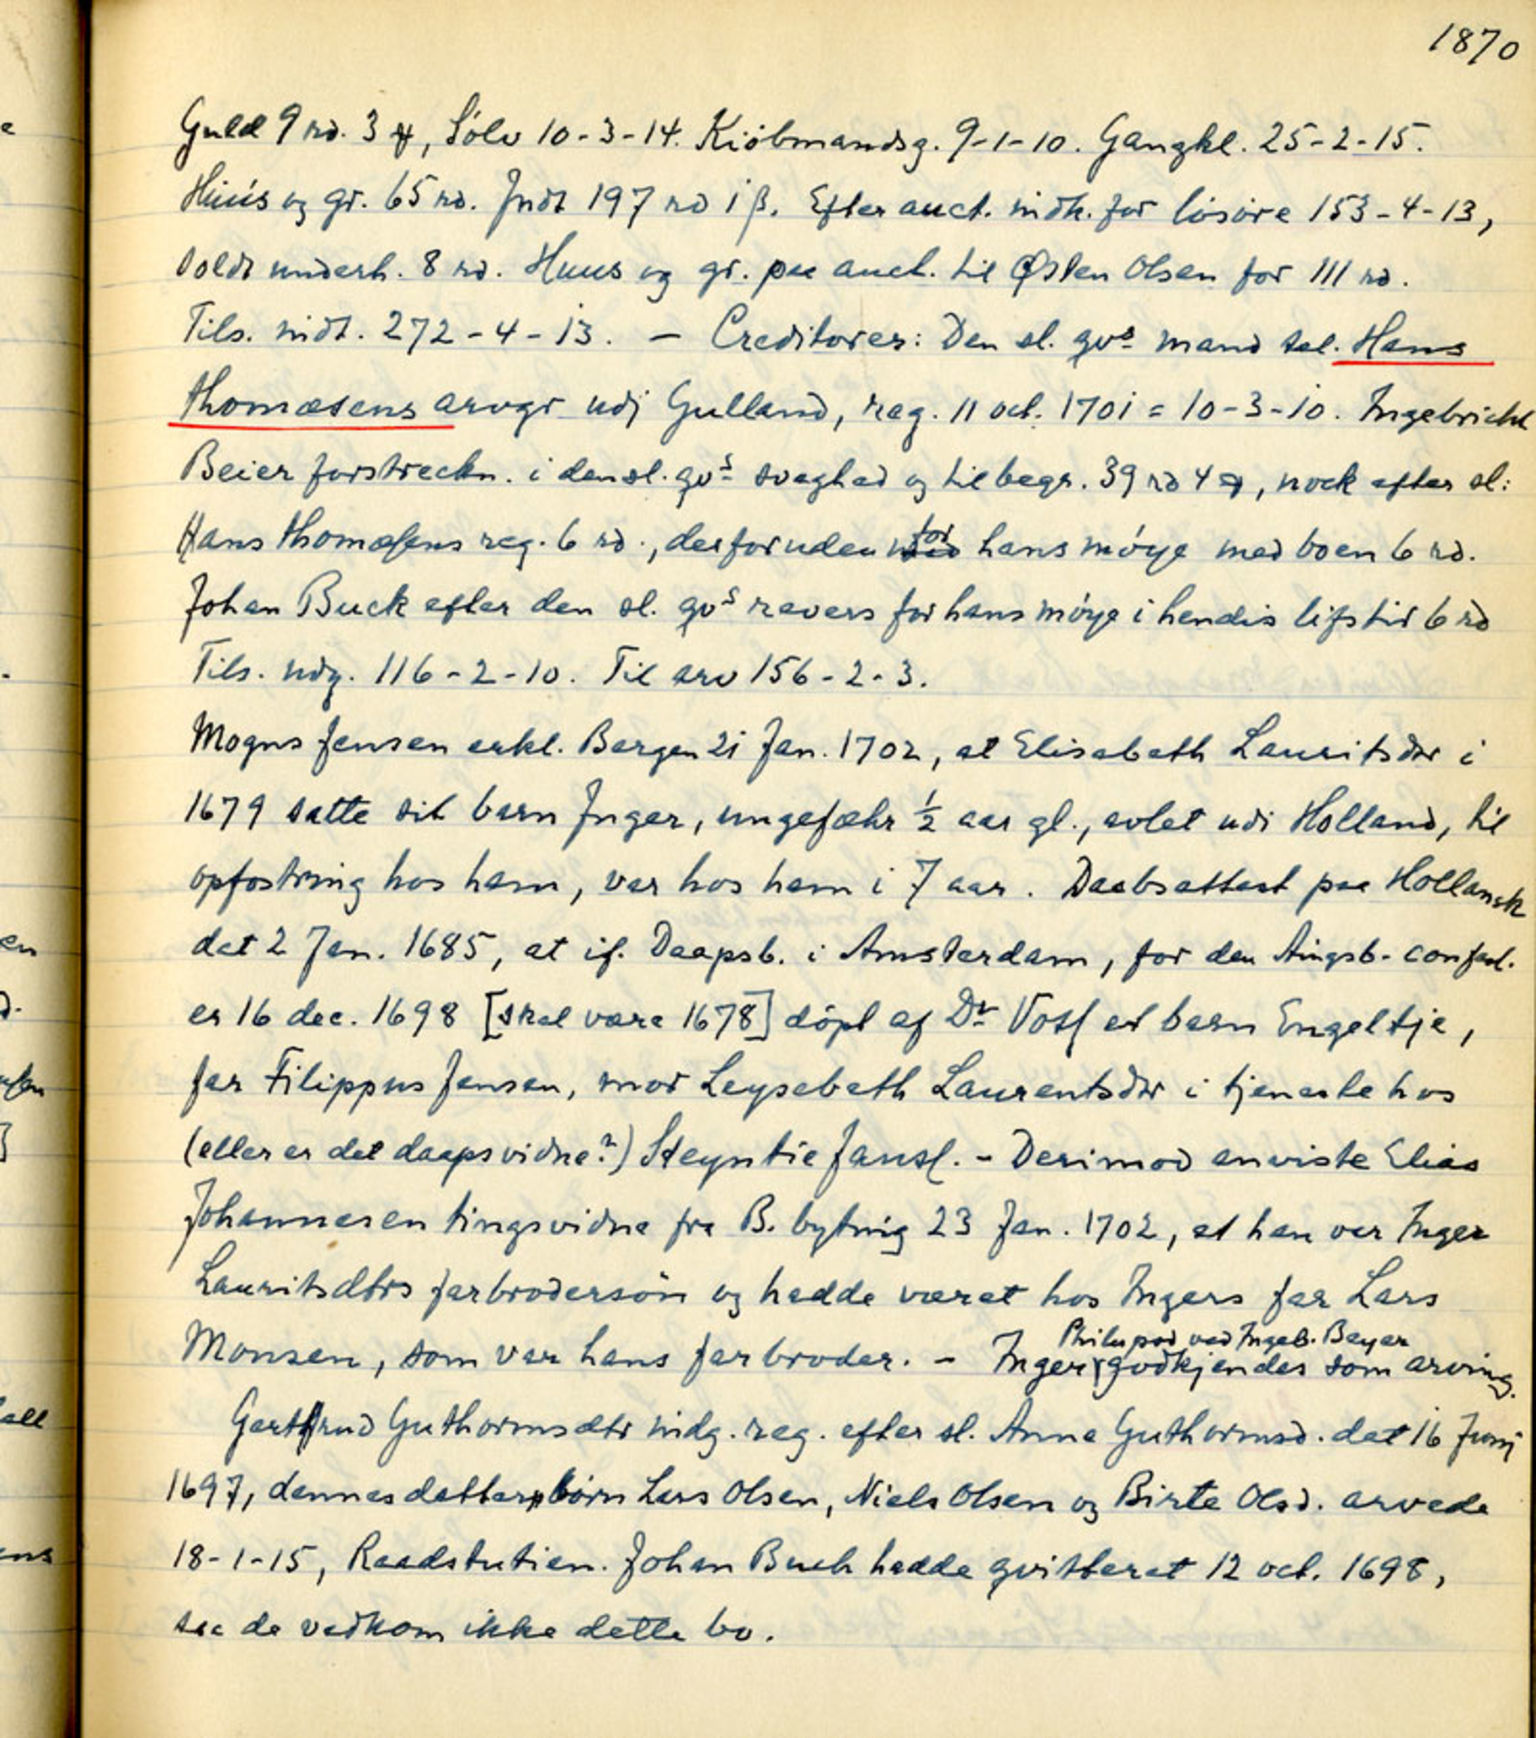 1870
Guld 9 rd. 3 ꝟ, Sölv 10-3-14. Kiöbmandsg. 9-1-10. Gangkl. 25-2-15.
Huus og gr. 65 rd. Indt 197 rd 1 ß. Efter auct. indk. for lösöre 153-4-13,
soldt underh. 8 rd. Huus og gr. paa auct. til Østen Olsen for 111 rd.
Tils. indt. 272-4-13. — Creditorer: Den sl. qvs mand sal. Hans
Thomæsens arvgr udj Gulland, reg. 11 oct. 1701 = 10-3-10. Ingebricht
Beier forstreckn. i den sl. qvs svaghed og til begr. 39 rd 4 ꝟ, nock efter sl:
Hans Thomæsens reg. 6 rd., desforuden for hans möye med boen 6 rd.
Johan Buck efter den sl. qvs revers for hans möye i hendis lifstid 6 rd
Tils. udg. 116-2-10. Til arv 156-2-3.
Mogns Jensen erkl. Bergen 21 Jan. 1702, at Elisabeth Lauritsdtr i
1679 satte sit barn Inger, ungefæhr ½ aar gl., avlet udi Holland, til
opfostring hos ham, var hos ham i 7 aar. Daabsattest paa Hollansk
dat 2 Jan. 1685, at if. Daapsb. i Amsterdam, for den Augsb. confess.
er 16 dec. 1698 [skal være 1678] döpt af Dr Voss et barn Engeltje,
far Filippus Jansen, mor Leysebeth Laurentsdtr i tjeneste hos
(eller er det daapsvidne?) Steyntie Janss. - Derimod anviste Elias
Johannesen tingsvidne fra B. byting 23 Jan. 1702, at han var Inger
Lauritsdtrs farbrodersön og hadde været hos Ingers far Lars
Monsen, som var hans farbroder. - Inger Philipsd ved Ingeb. Beyer godkjendes som arving.
Gerthrud Guthormsdtr indg. reg. efter sl. Anne Guthormsd. dat 16 Junj
1697, dennes datterbörn Lars Olsen, Niels Olsen og Birte Olsd. arvede
18-1-15, Raadstutien. Johan Buch hadde qvitteret 12 oct. 1698,
saa de vedkom ikke dette bo.